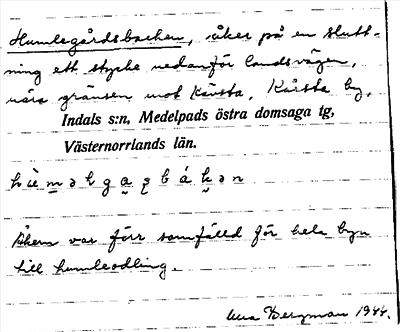 Humlegårdsbacken, åker på en slutt-
ning ett stycke nedanför landsvägen,
nära gränsen mot Kävsta, Kärsta by,
Indals s:n, Medelpads östra domsaga tg,
Västernorrlands län.
var förr samfälld för hela byn
till humleodling.
Bergman 1944.